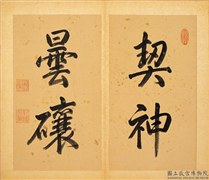 契神
曇礦
國立故宮博物院